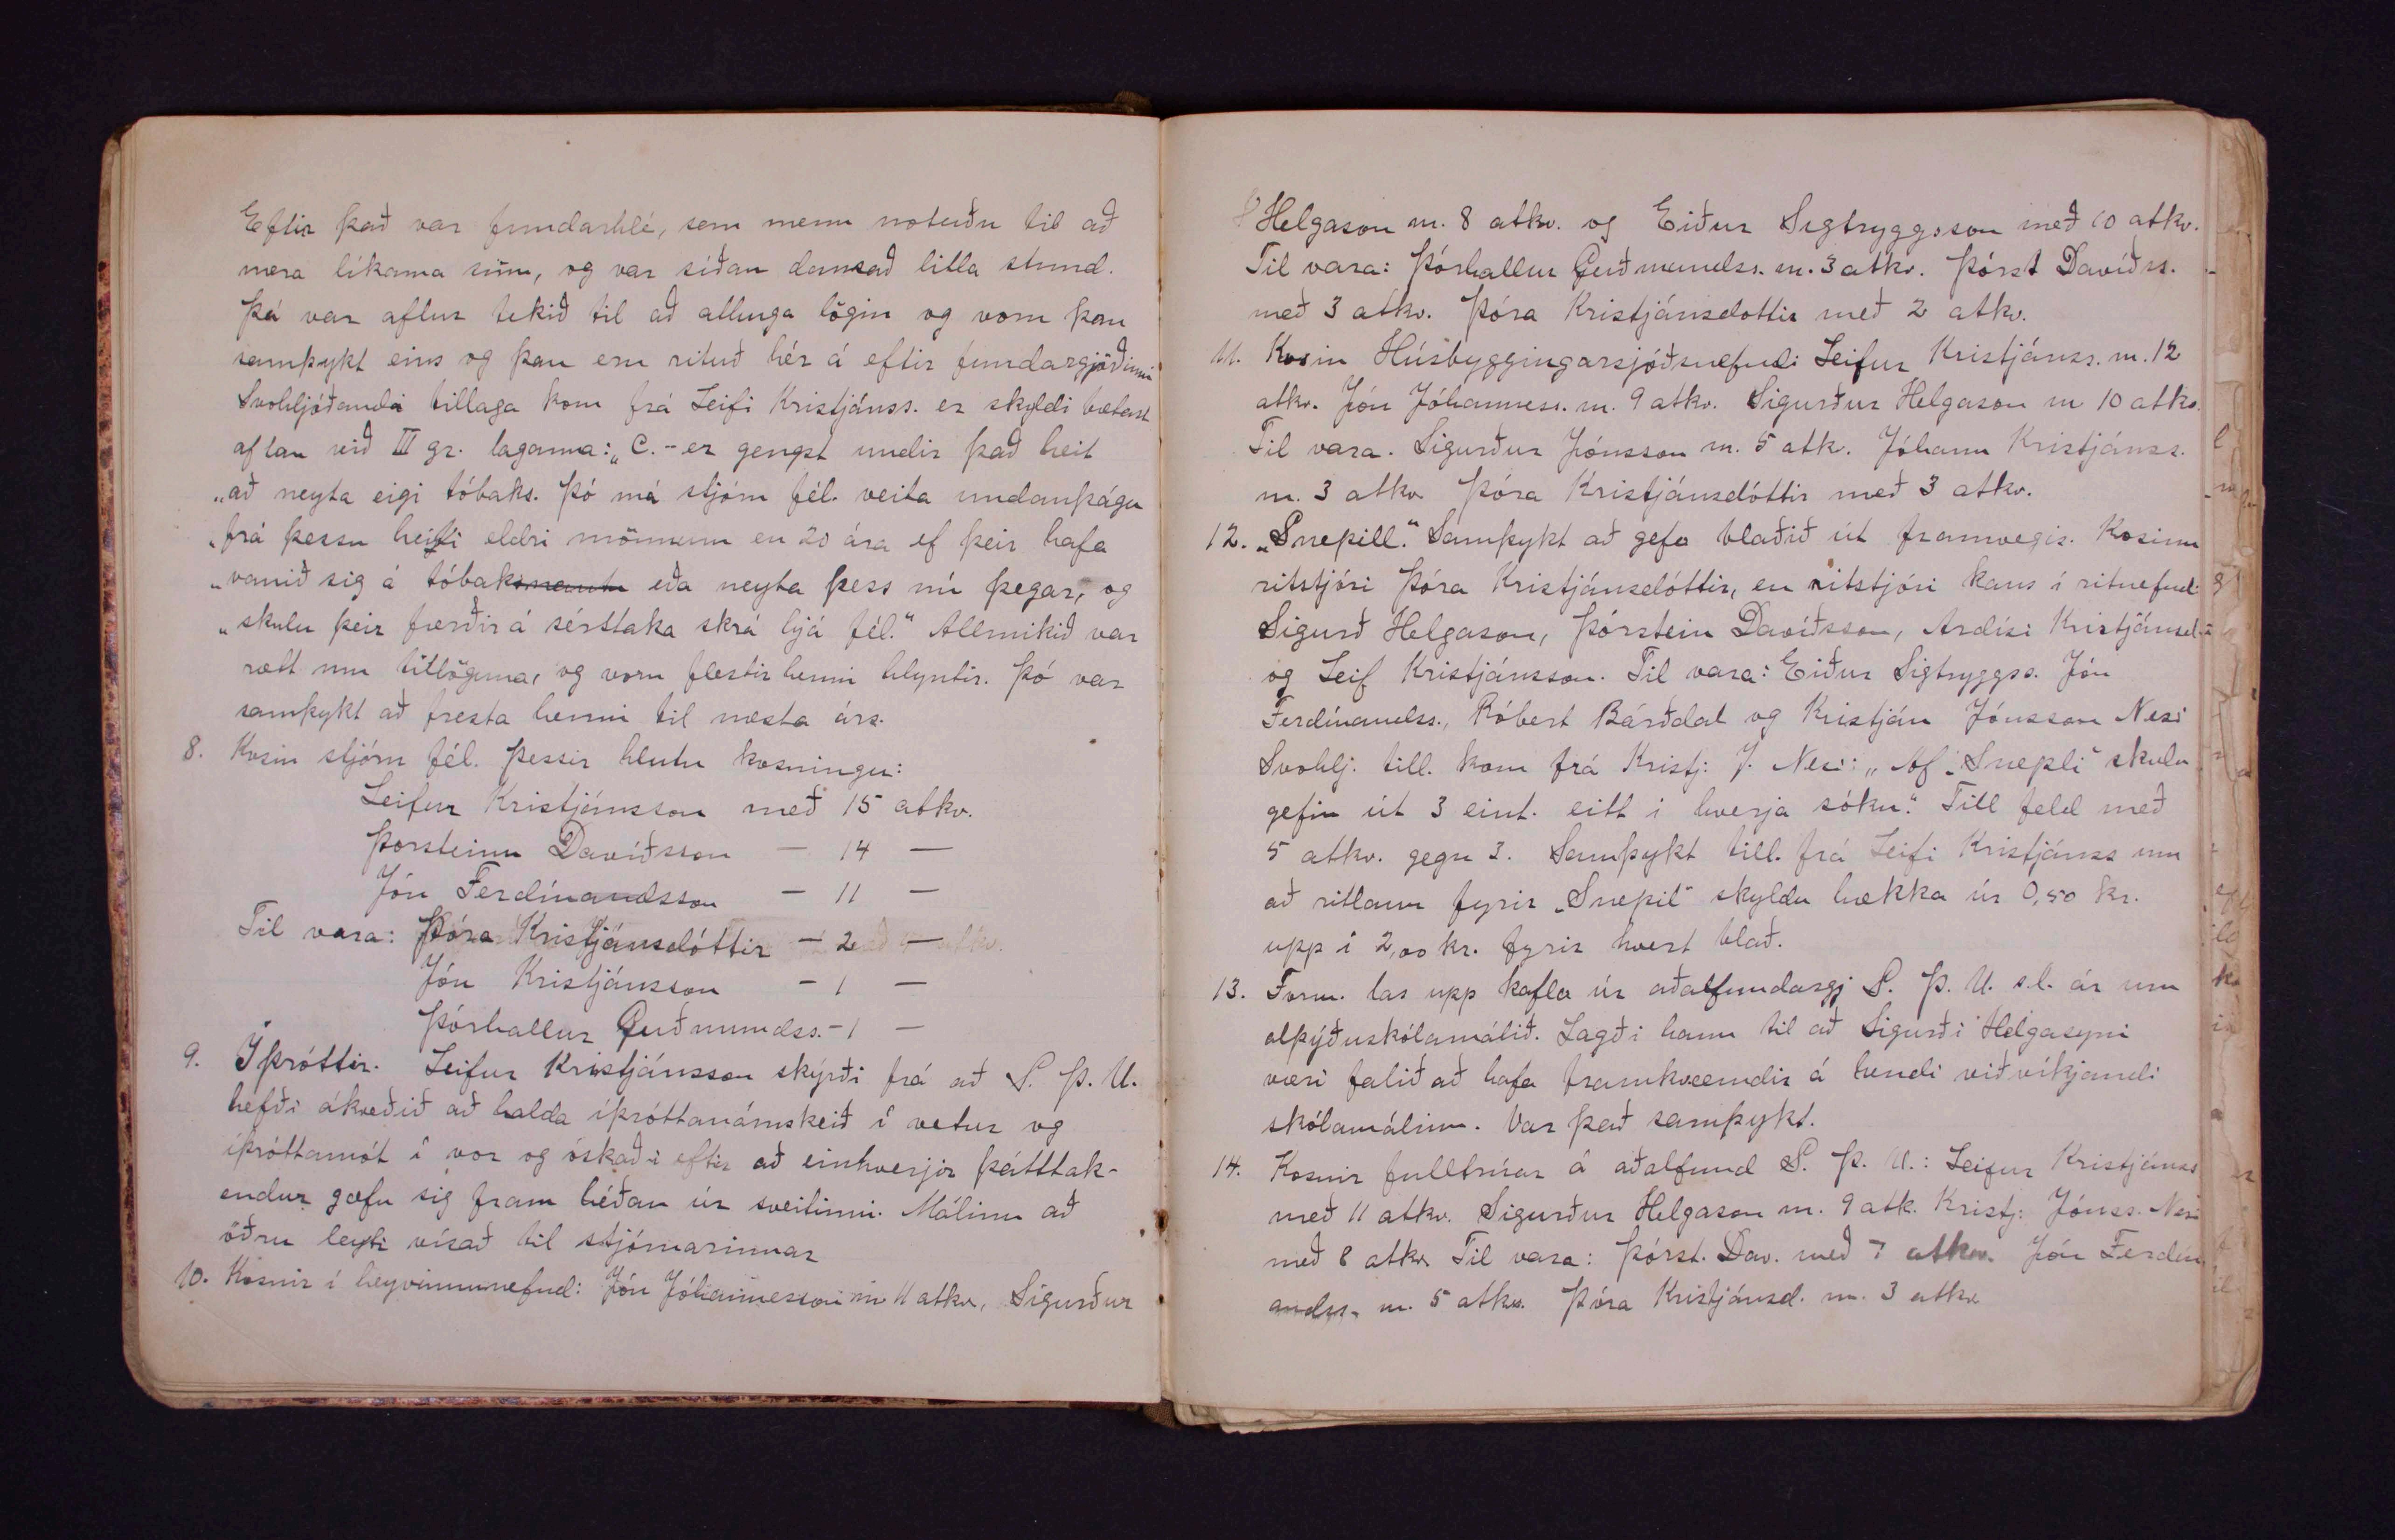 Eftir það var fundarhlé, sem menn notuðu til að
næra líkama sinn, og var síðan dansað litla stund.
Þá var aftur tekið til að athuga lögin og voru þau
samþykt eins og þau eru rituð hér á eftir fundargjörðinni
Svohljóðandi tillaga kom frá Leifi Kristjánss. er skyldi bætast
aftan við III gr. laganna: „C. - er gengst undir það heit
„að neyta eigi tóbaks. Þó má stjórn fél. veita undanþágu
„frá þessu heiti eldri mönnum en 20 ára ef þeir hafa
„vanið sig á tóbaksnautn eða neyta þess nú þegar, og
„skulu þeir færðir á sérstaka skrá hjá fél." Allmikið var
rætt um tillöguna, og voru flestir henni hlyntir. Þó var
samþykt að fresta henni til næsta árs.
8. Kosin stjórn fél. Þessir hlutu kosningu:
Leifur Kristjánsson með 15 atkv.
Þorsteinn Davíðsson — 14 —
Jón Ferdínandsson — 11 —
Til vara: Þóra Kristjánsdóttir — 2 —
Jón Kristjánsson — 1 —
Þórhallur Guðmundss. — 1 —
9. Íþróttir. Leifur Kristjánsson skýrði frá að S. Þ. U.
hefði ákveðið að halda íþróttanámskeið í vetur og
íþróttamót í vor og óskaði eftir að einhverjir þátttak-
endur gæfu sig fram héðan úr sveitinni. Málinu að
öðru leyti vísað til stjórnarinnar
10. Kosnir í heyvinnunefnd: Jón Jóhannesson m 11 atkv, Sigurður
Helgason m. 8 atkv. og Eiður Sigtryggsson með 10 atkv.
Til vara: Þórhallur Guðmundss. m. 3 atkv. Þórst Davíðss.
með 3 atkv. Þóra Kristjánsdottir með 2 atkv.
11. Kosin Húsbyggingarsjóðsnefnd: Leifur Kristjánss. m. 12
atkv. Jón Jóhanness. m. 9 atkv. Sigurður Helgason m 10 atkv.
Til vara. Sigurður Jónsson m. 5 atk. Jóhann Kristjánss.
m. 3 atkv Þóra Kristjánsdóttir með 3 atkv.
12. „Snepill." Samþykt að gefa blaðið út framvegis. Kosinn
ritstjóri Þóra Kristjánsdóttir, en ritstjóri kaus í ritnefnd:
Sigurð Helgason, Þórstein Davíðsson, Ardísi Kristjánsd.
og Leif Kristjánsson. Til vara: Eiður Sigtryggss. Jón
Ferdínandss., Róbert Bárðdal og Kristján Jónsson Nesi
Svohlj. till. kom frá Kristj: J. Nesi: „Af „Snepli" skulu
gefin út 3 eint. eitt í hverja sókn." Till feld með
5 atkv. gegn 3. Samþykt till. frá Leifi Kristjánss um
að ritlaun fyrir „Snepil" skyldu hækka úr 0,50 kr.
upp í 2,00 kr. fyrir hvert blað.
13. Form. las upp kafla úr aðalfundargj S. Þ. U. s.l. ár um
alþýðuskólamálið. Lagði hann til að Sigurði Helgasyni
væri falið að hafa framkvæmdir á hendi viðvíkjandi
skólamálinu. Var það samþykt.
14. Kosnir fulltrúar á aðalfund S. Þ. U.: Leifur Kristjánss
með 11 atkv. Sigurður Helgason m. 9 atk. Kristj: Jónss. Nesi
með 8 atkv. Til vara: Þórst. Dav. með 7 atkv. Jón Ferdín
andss. m. 5 atkv. Þóra Kristjánsd. m. 3 atkv